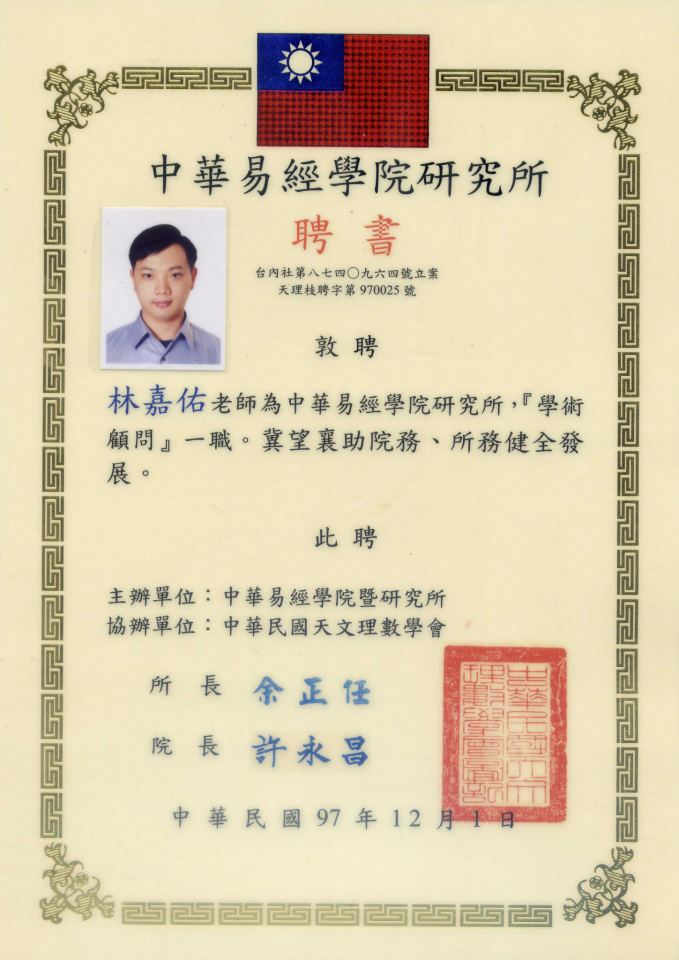 中華易經學院研究所
聘書
台內社第八七四〇九六四號立案
天理枝聘字第970025號
敦聘
林嘉佑老師為中華易經學院研究所，『學術
顧問』一職。冀望襄助院務、所務健全發
展。
此聘
主辦單位：中華易經學院暨研究所
協辦單位：中華民國天文理數學會
所長 余正任
院長 許永昌
中華民國97年12月1日